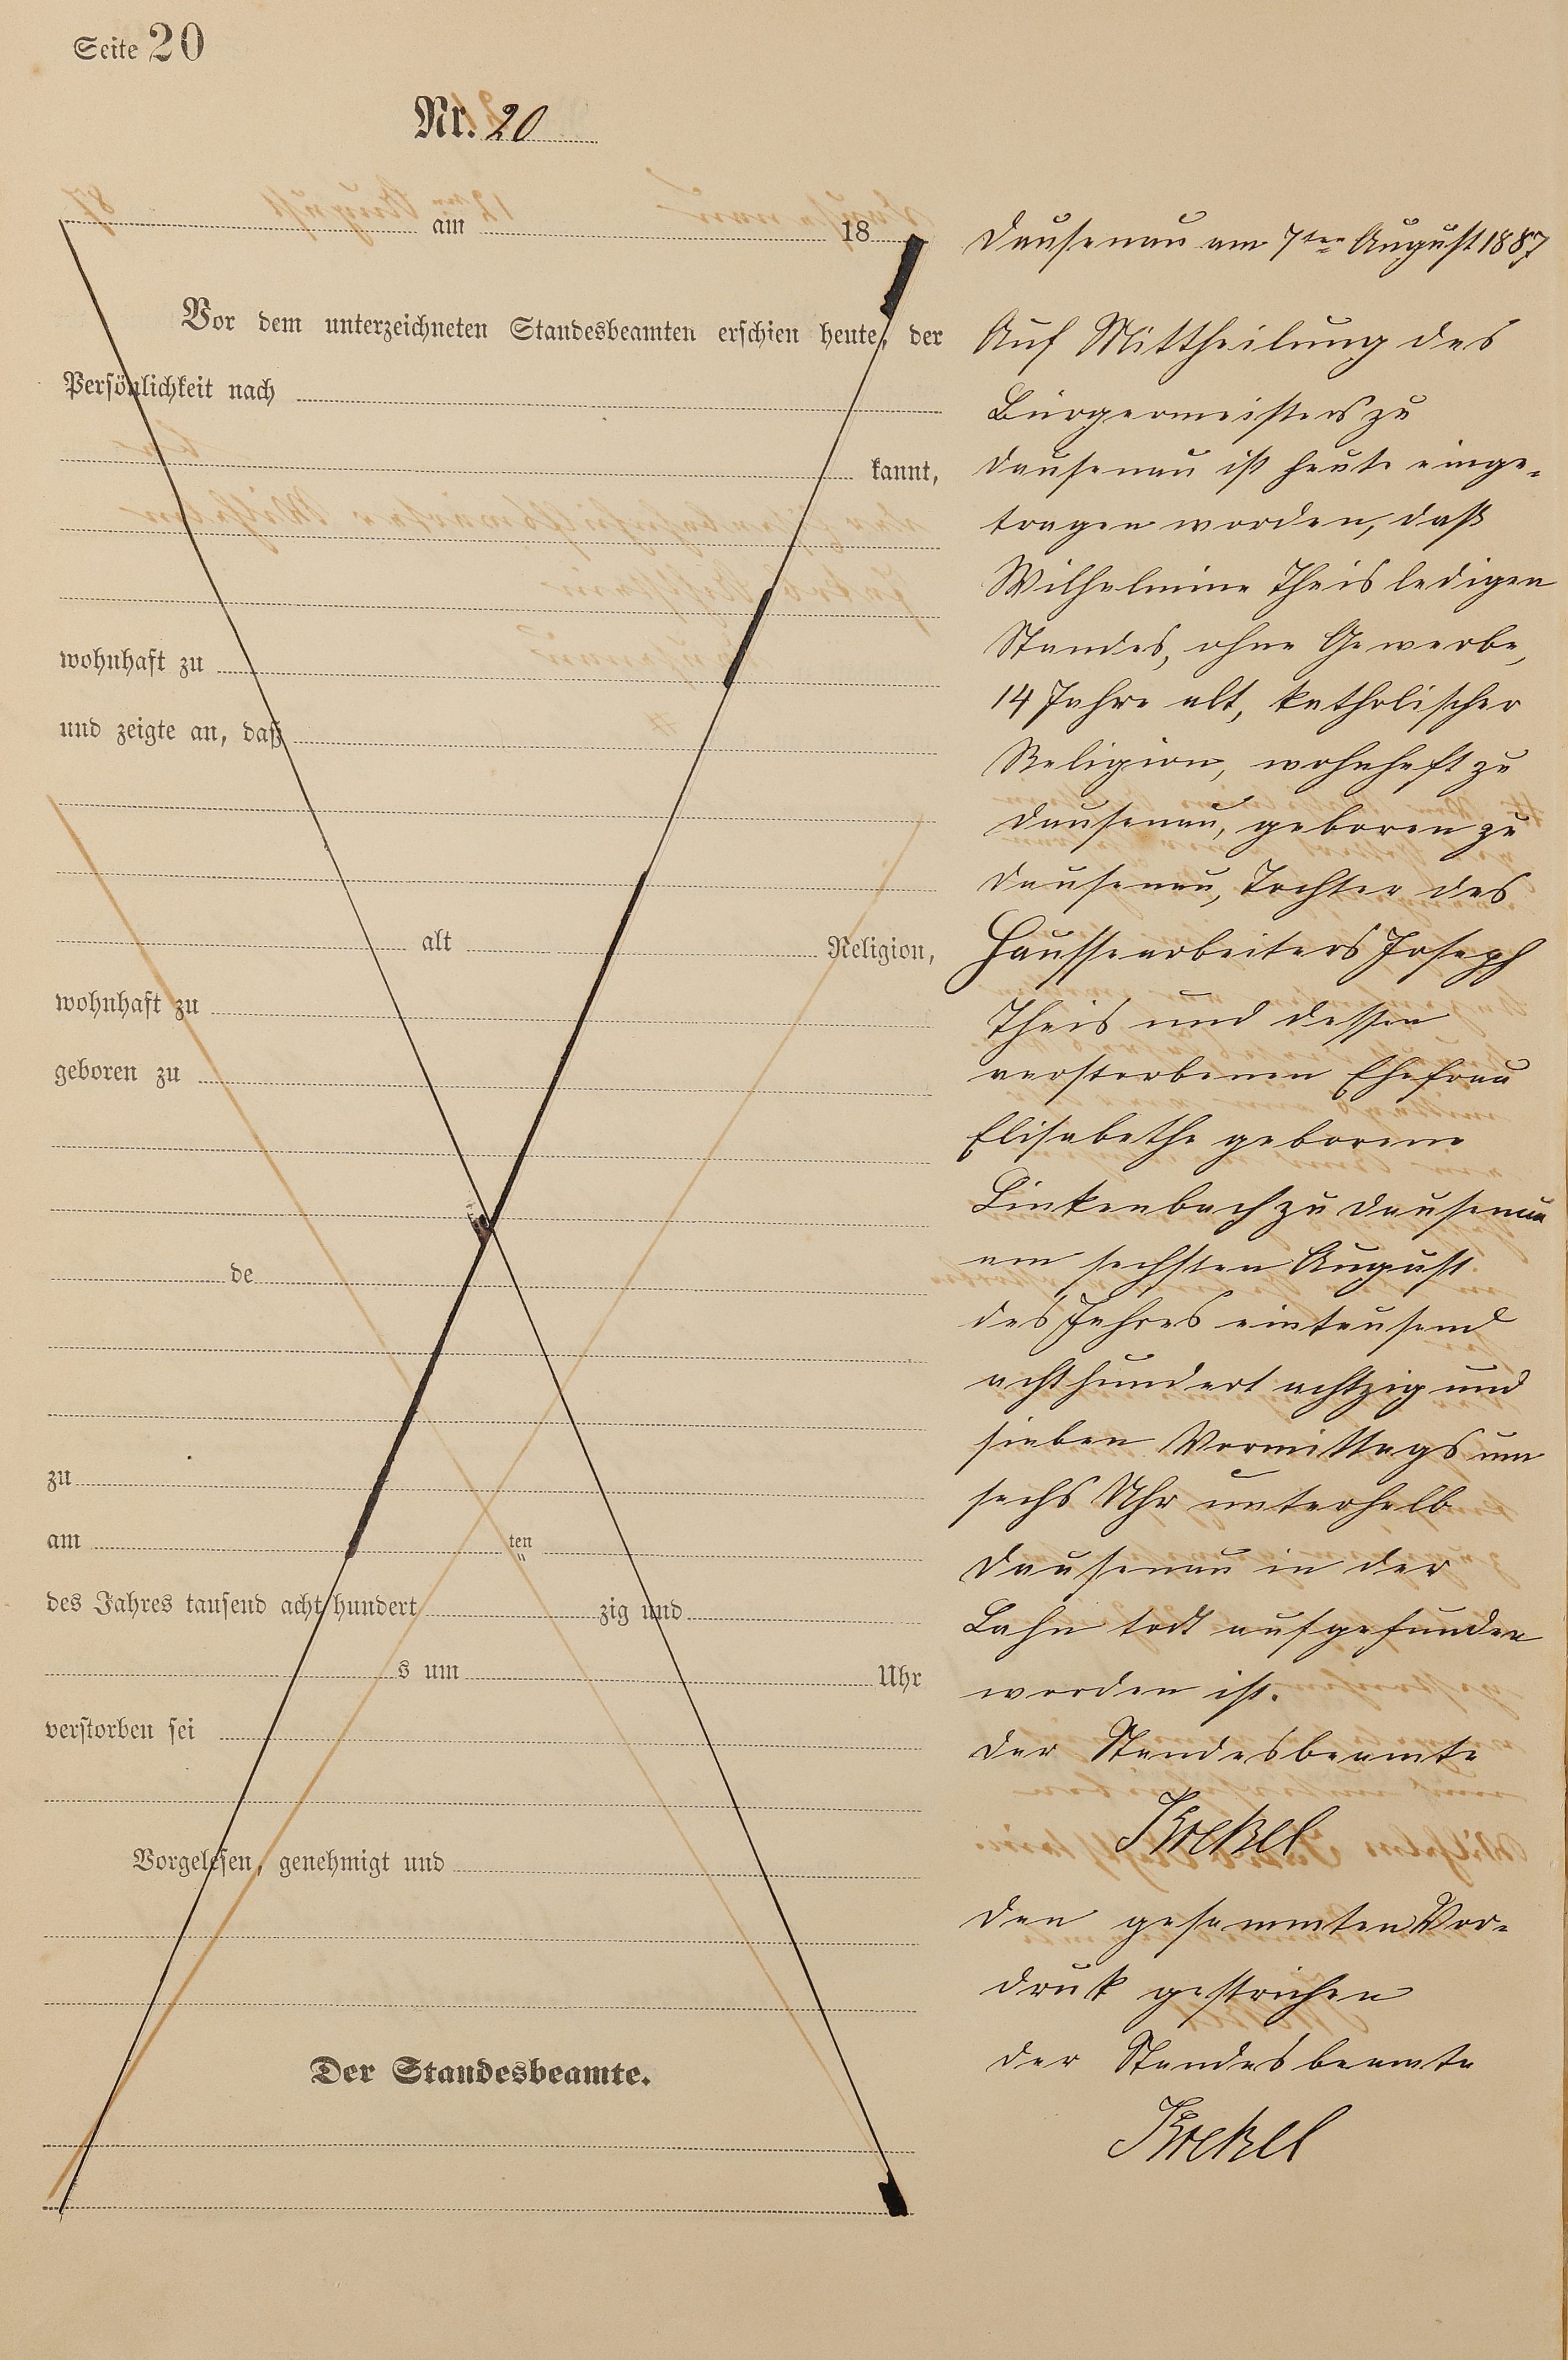 Seite 20
Nr. 20
am 18
Vor dem unterzeichneten Standesbeamten erschien heute, der
Persönlichkeit nach
kannt,
wohnhaft zu
und zeigte an, daß
alt Religion,
wohnhaft zu
geboren zu
de
zu
am ten
des Jahres tausend acht hundert zig und
s um Uhr
verstorben sei
Vorgelesen, genehmigt und
Der Standesbeamte.
Dausenau am 7ten August 1887
Auf Mittheilung des
Bürgermeisters zu
Dausenau ist heute einge-
tragen worden, daß
Wilhelmine Theis ledigen
Standes, ohne Gewerbe,
14 Jahre alt, katholischer
Religion, wohnhaft zu
Dausenau, geboren zu
Dausenau, Tochter des
Joseph
Theis und dessen
verstorbenen Ehefrau
Elisabethe geborene
Linkenbach zu Dausenau
am sechsten August
des Jahres eintausend
achthundert achtzig und
sieben Vormittags um
sechs Uhr unterhalb
Dausenau in der
Lahn todt aufgefunden
worden ist.
Der Standesbeamte
Den gesammten Vor-
druk gestrichen
Der Standesbeamte